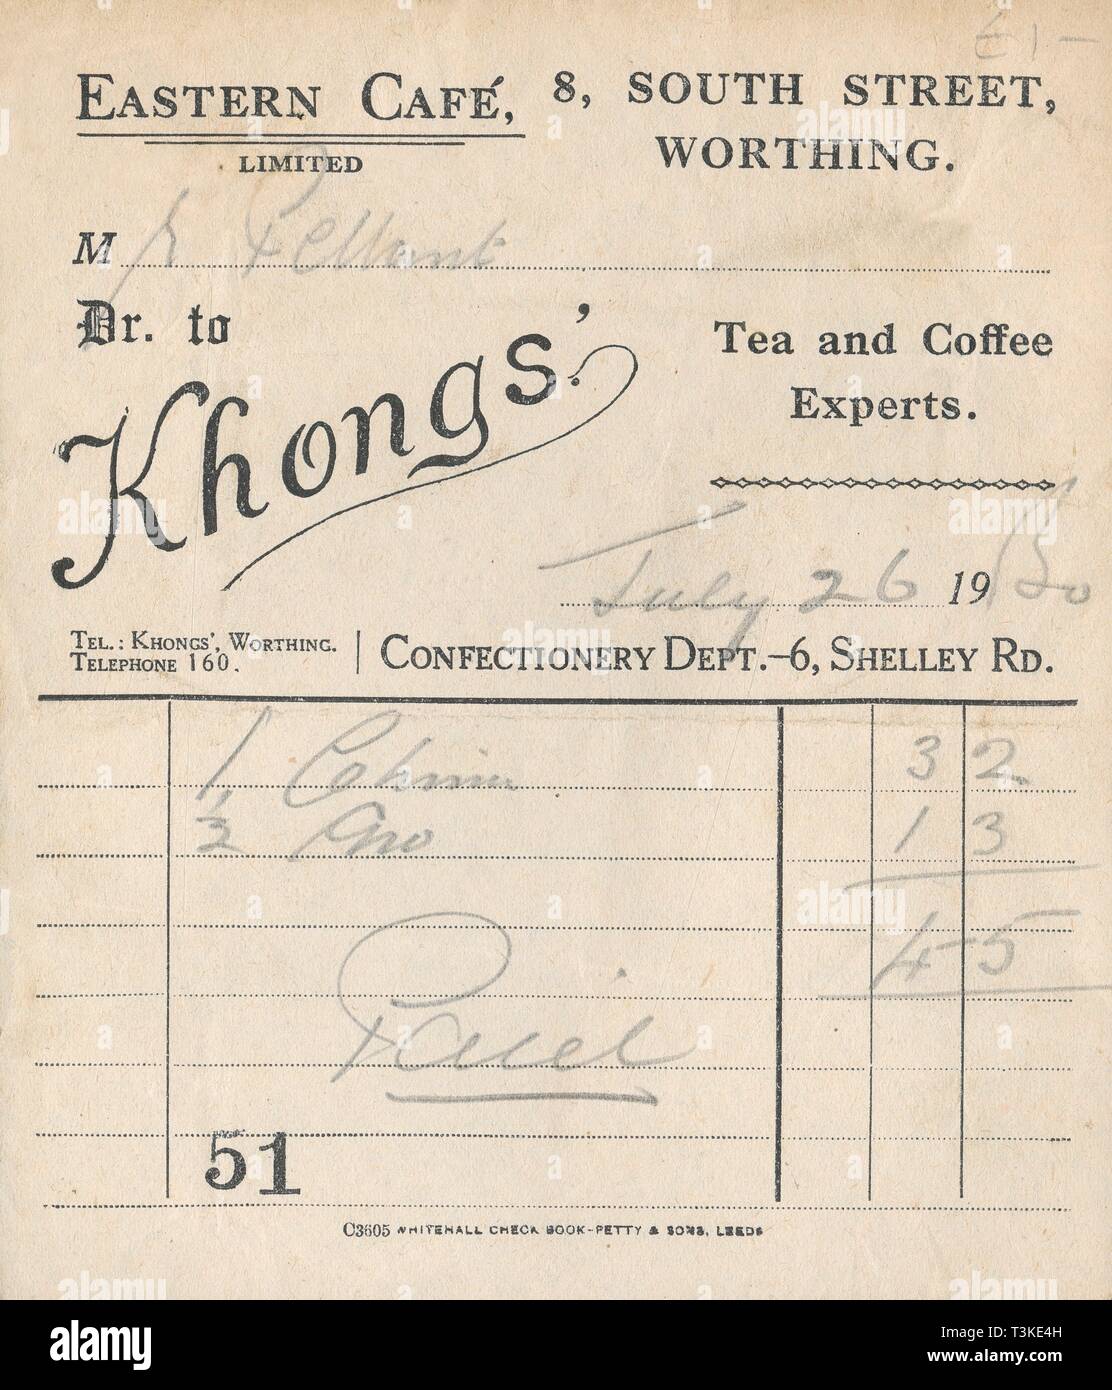 £1-
EASTERN CAFÉ, 8, SOUTH STREET,
LIMITED WORTHING.
M r Pellant
Dr. to
Khongs'. Tea and Coffee
Experts.
July 26 19
TEL.: KHONGS', WORTHING.
TELEPHONE 160.
CONFECTIONERY DEPT.-6, SHELLEY RD.
1 China 3 2
1/2 1 3
4 5
Paid
51
C3605 WHITEHALL CHECK BOOK-PETTY & SONS, LEEDS
alamy
Image ID: T3KE4H
www.alamy.com